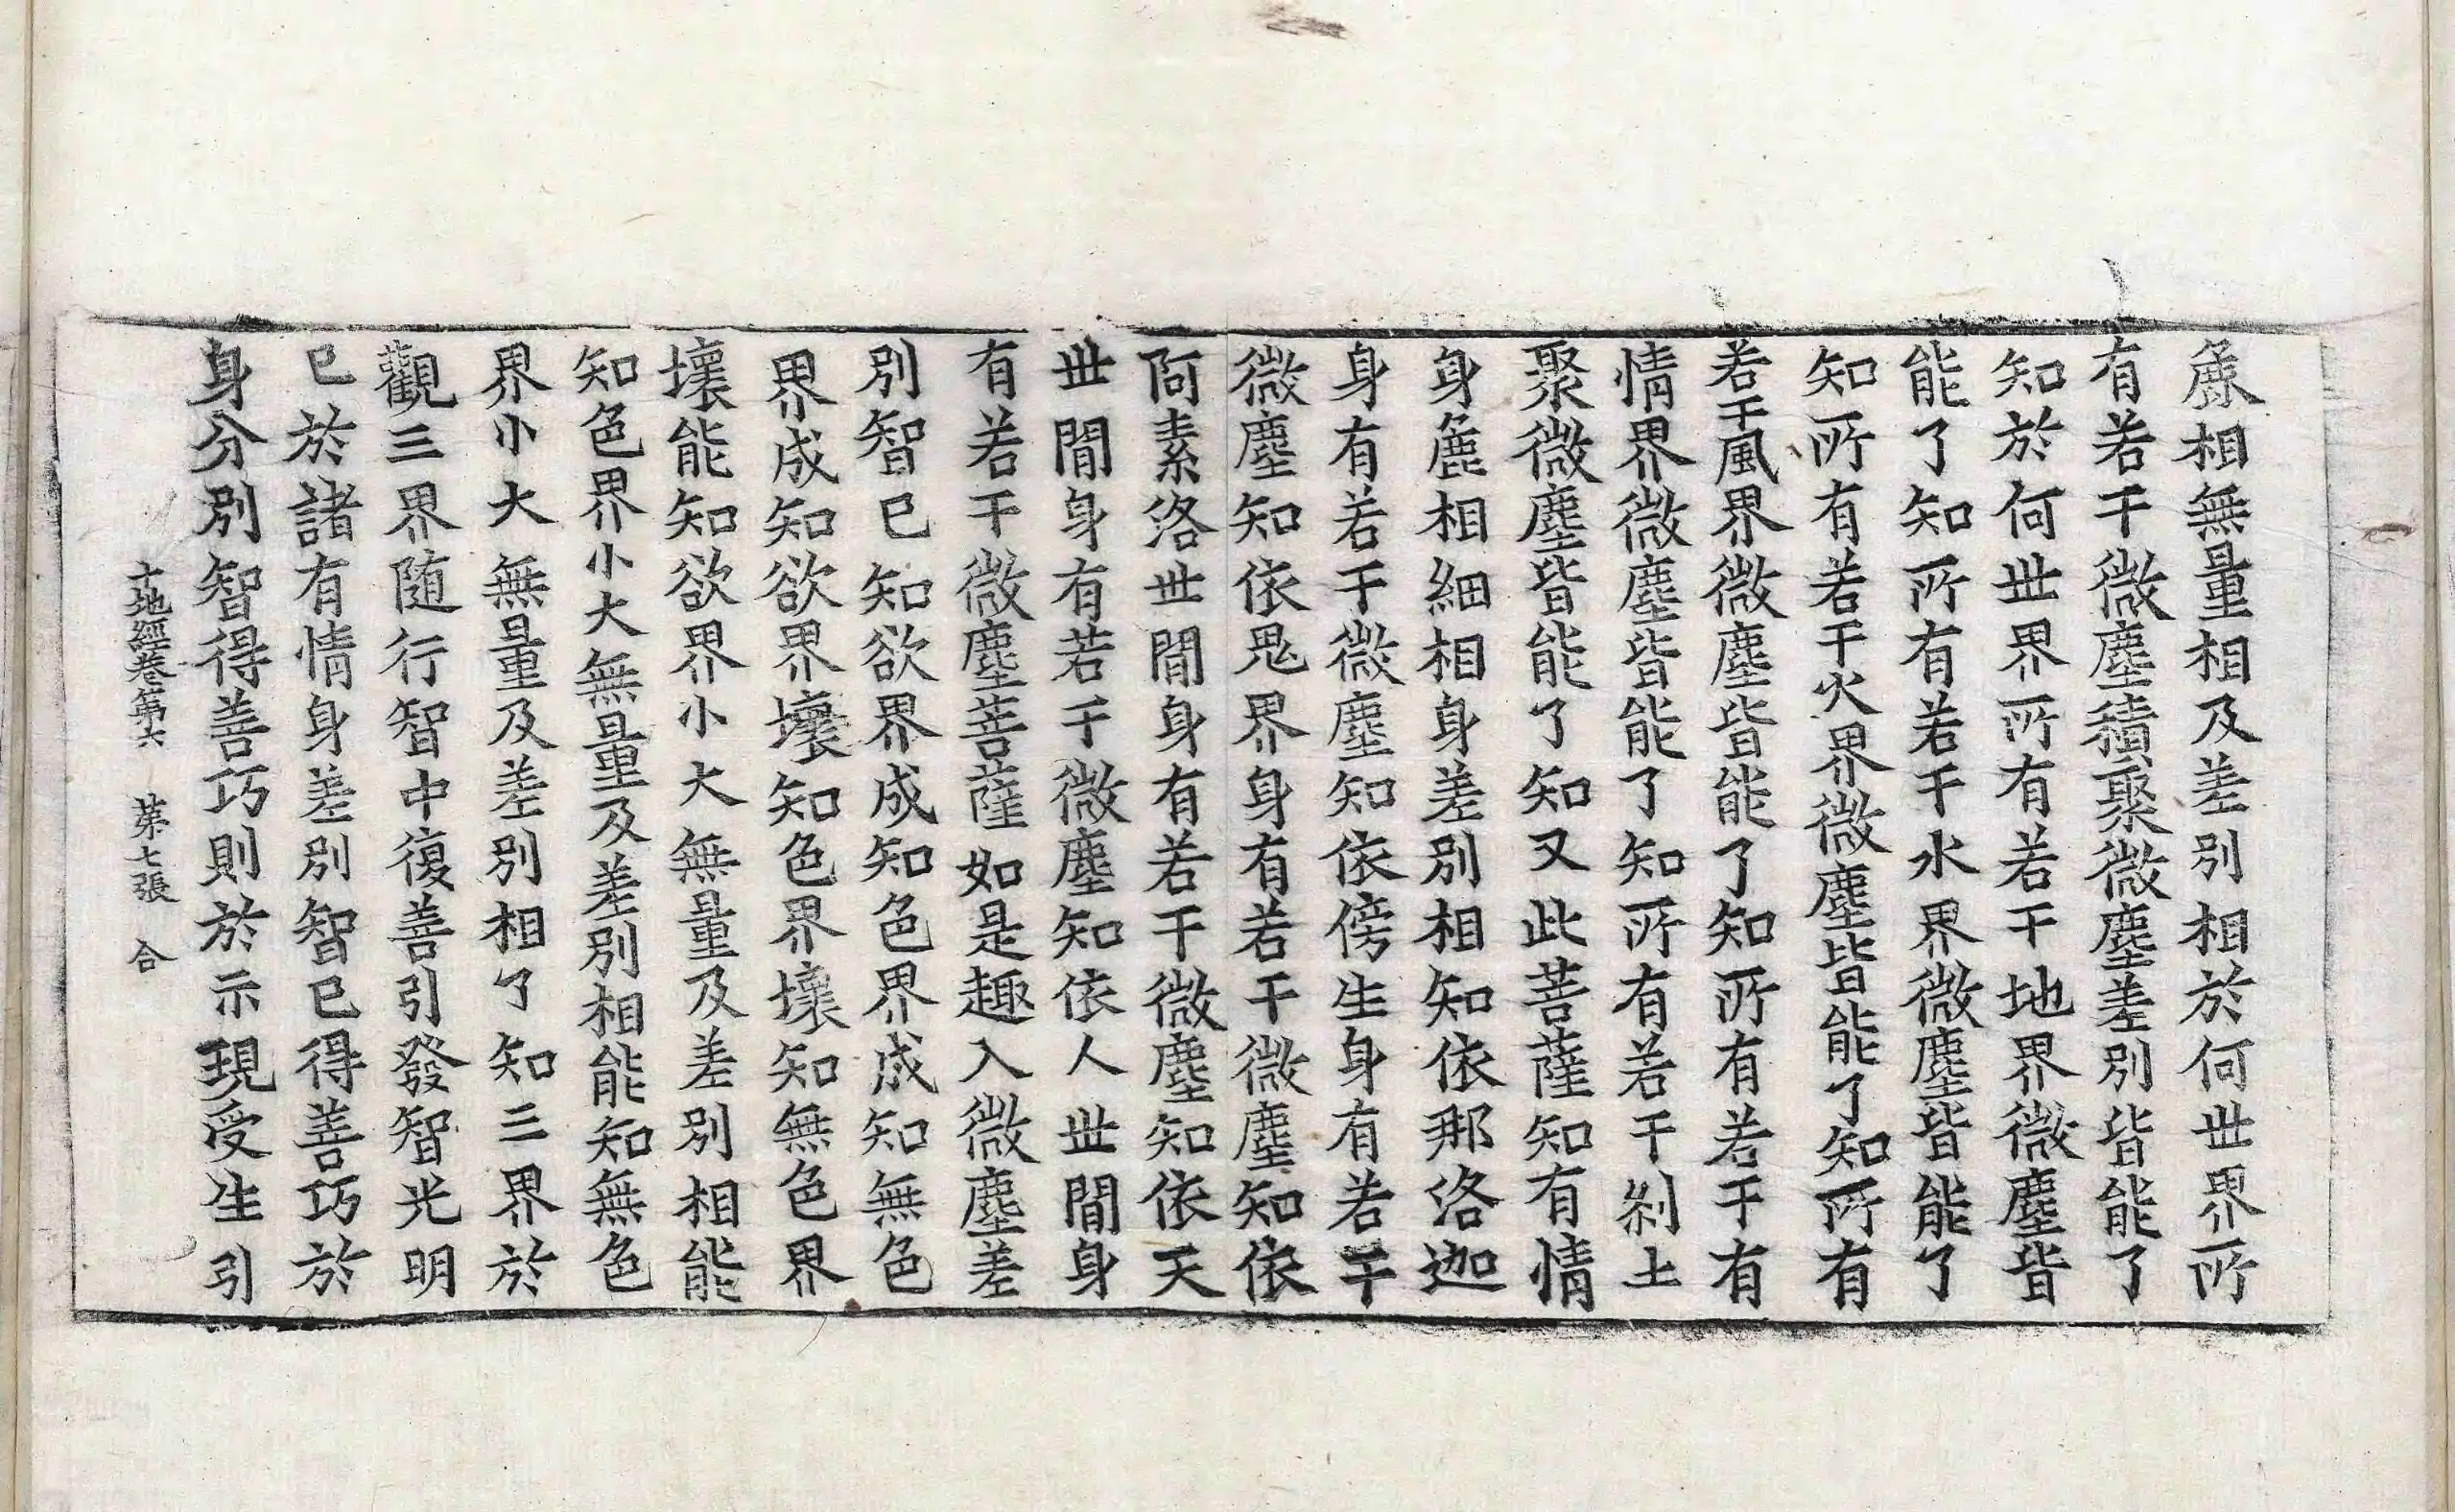 麁相無量相及差別相於何世界所
有若干微塵積聚微塵差別皆能了
知於何世界所有若干地界微塵皆
能了知所有若干水界微塵皆能了
知所有若干火界微塵皆能了知所有
若干風界微塵皆能了知所有若干有
情界微塵皆能了知所有若干剎土
聚微塵皆能了知又此菩薩知有情
身麁相細相身差別相知依那洛迦
身有若干微塵知依傍生身有若干
微塵知依鬼界身有若干微塵知依
阿素洛世間身有若干微塵知依天
世間身有若干微塵知依人世間身
有若干微塵菩薩如是趣入微塵差
別智已知欲界成知色界成知無色
界成知欲界壞知色界壞知無色界
壞能知欲界小大無量及差別相能
知色界小大無量及差別相能知無色
界小大無量及差別相了知三界於
觀三界随行智中復善引發智光明
已於諸有情身差別智已得善巧於
身分別智得善巧則於示現受生引
十地經卷第六 第七張 合